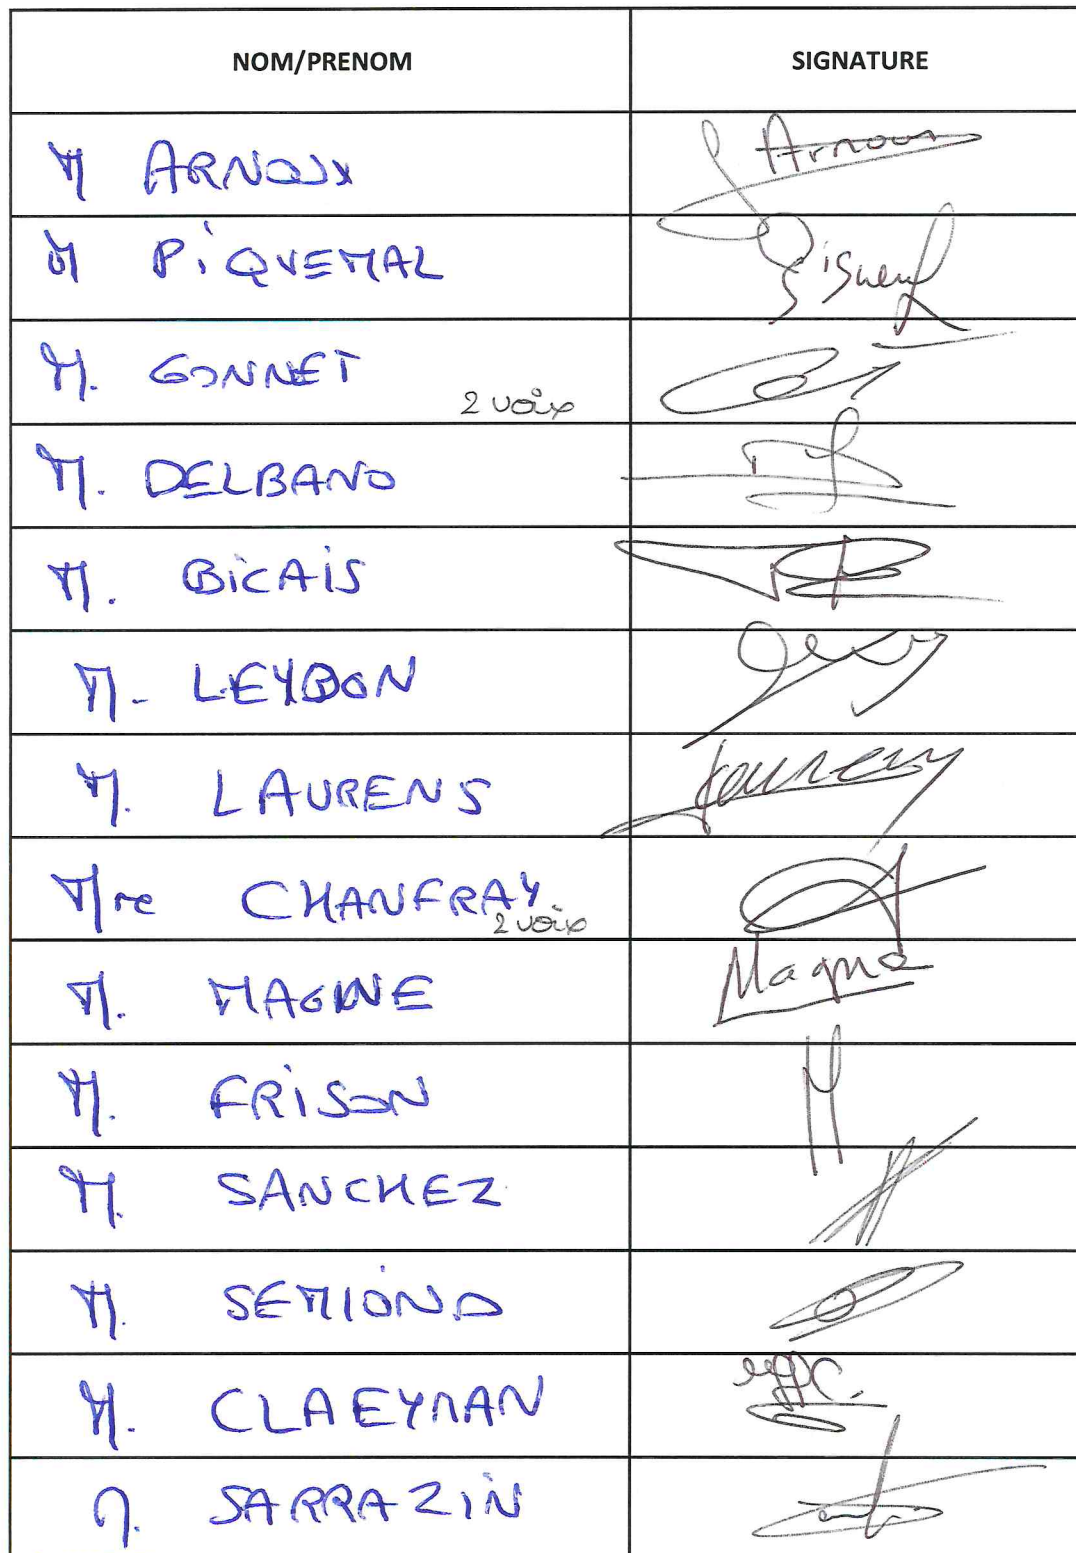 NOM/PRENOM SIGNATURE
M ARNOUX Arnoux
M PIQUEMAL
M. GONNET 2 voix
M. DELBANO
M. BICAIS
M. LEYDON
M. LAURENS Laurens
Mre CHANFRAY 2 voix
M. MAGNE Magne
M. FRISON
M. SANCHEZ
M. SEMIOND
M. CLAEYMAN
M. SARRAZIN